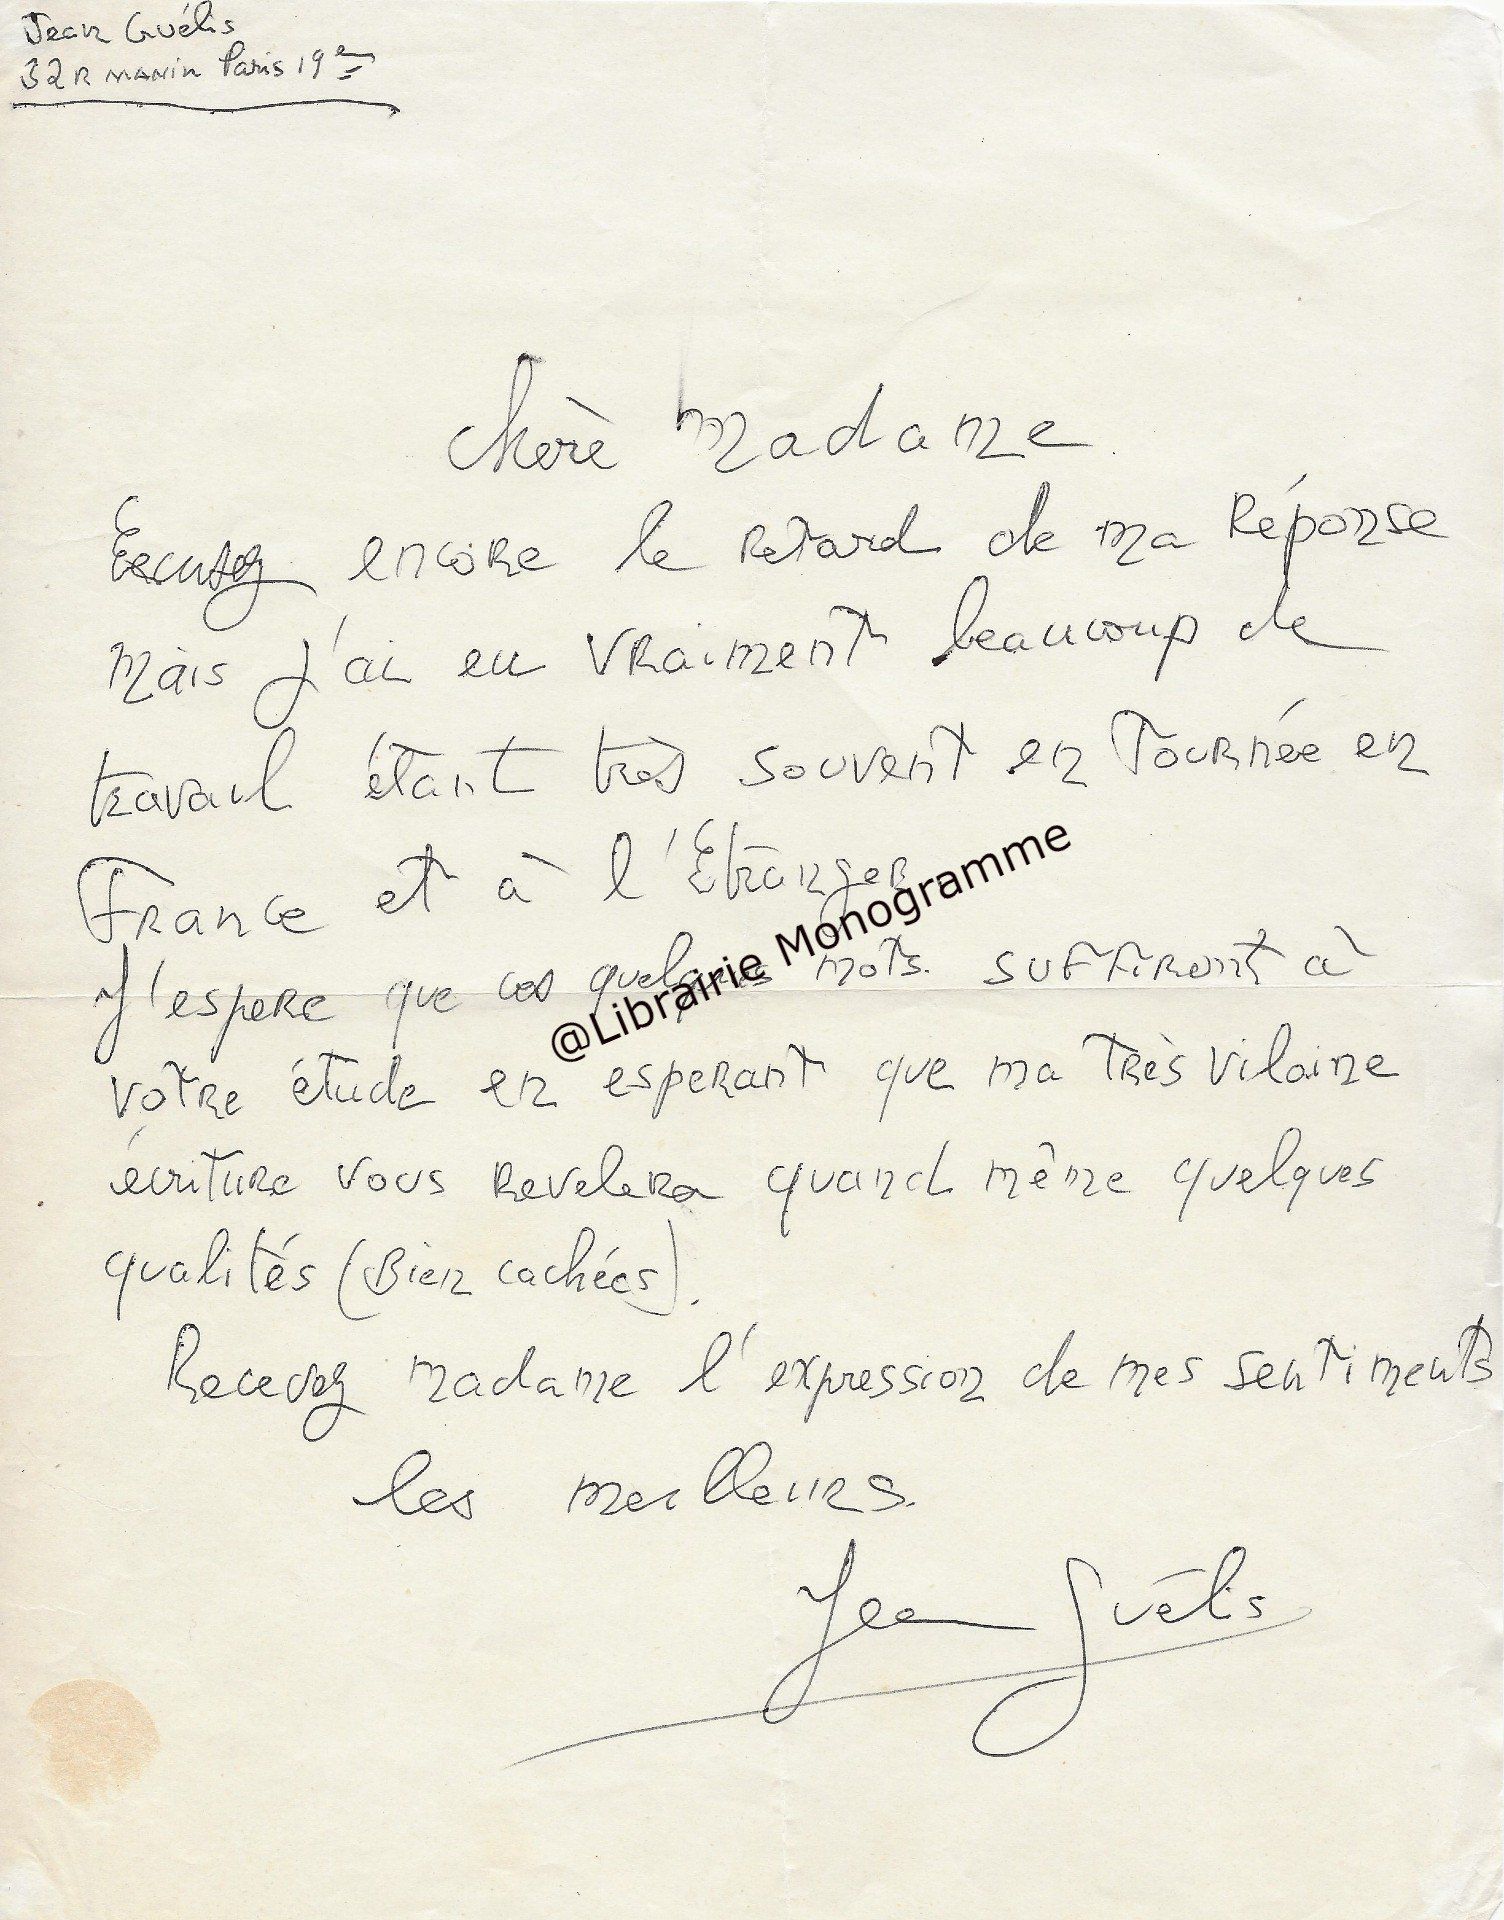 Jean Guélis
32 R MANIN Paris 19e
Chère Madame
Excusez encore le retard de ma Réponse
mais j'ai eu vraiment beaucoup de
travail étant très souvent en Tournée en
France et à l'Etranger
J'espere que ces quelques mots. suffiront à
@Librairie Monogramme
votre étude en esperant que ma très vilaine
écriture vous revelera quand même quelques
qualités (Bien cachées).
Recevez madame l'expression de mes sentiments
les meilleurs.
Jean Guélis